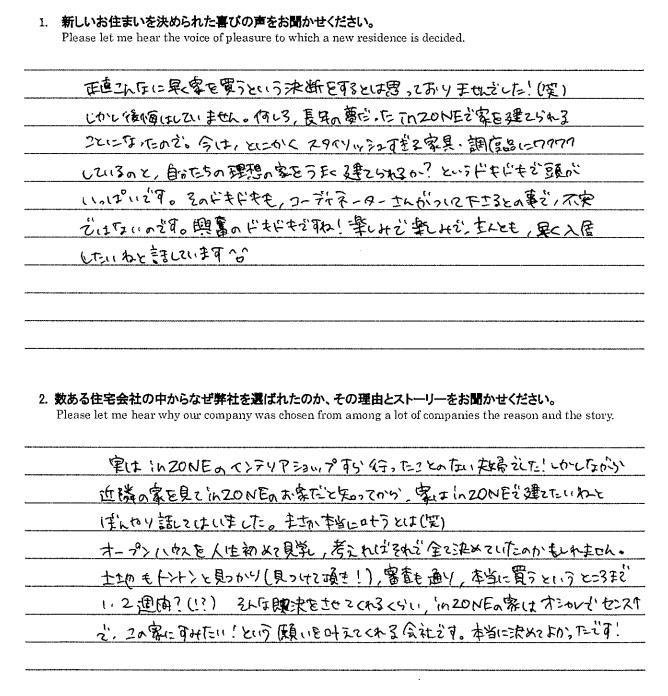 1. 新しいお住まいを決められた喜びの声をお聞かせください。
Please let me hear the voice of pleasure to which a new residence is decided.
正直こんなに早く家を買うという決断をするとは思っておりませんでした!(笑)
しかし後悔はしていません。何しろ、長年の夢だったinZONEで家を建てられる
ことになったので。今は、とにかくスタイリッシュすぎる家具・調度品にワクワク
しているのと、自分たちの理想の家をうまく建てられるか?というドキドキで頭が
いっぱいです。そのドキドキも、コーディネーターさんがついて下さるとの事で、不安
ではないのです。興奮のドキドキですね!楽しみで楽しみで、主人とも、早く入居
したいねと話しています^^
2. 数ある住宅会社の中からなぜ弊社を選ばれたのか、その理由とストーリーをお聞かせください。
Please let me hear why our company was chosen from among a lot of companies the reason and the story.
実はinZONEのインテリアショップすら行ったことのない夫婦でした!しかしながら
近隣の家を見てinZONEのお家だと知ってから、家はinZONEで建てたいねと
ぼんやり話してはいました。まさか本当に叶うとは(笑)
オープンハウスを人生初めて見学し、考えればそれで全て決めていたのかもしれません。
土地もトントンと見つかり(見つけて頂き!)、審査も通り、本当に買うというところまで
1、2週間?(!?) そんな即決をさせてくれるくらい、inZONEの家はオシャレでセンス
で、この家にすみたい!という願いを叶えてくれる会社です。本当に決めてよかったです!